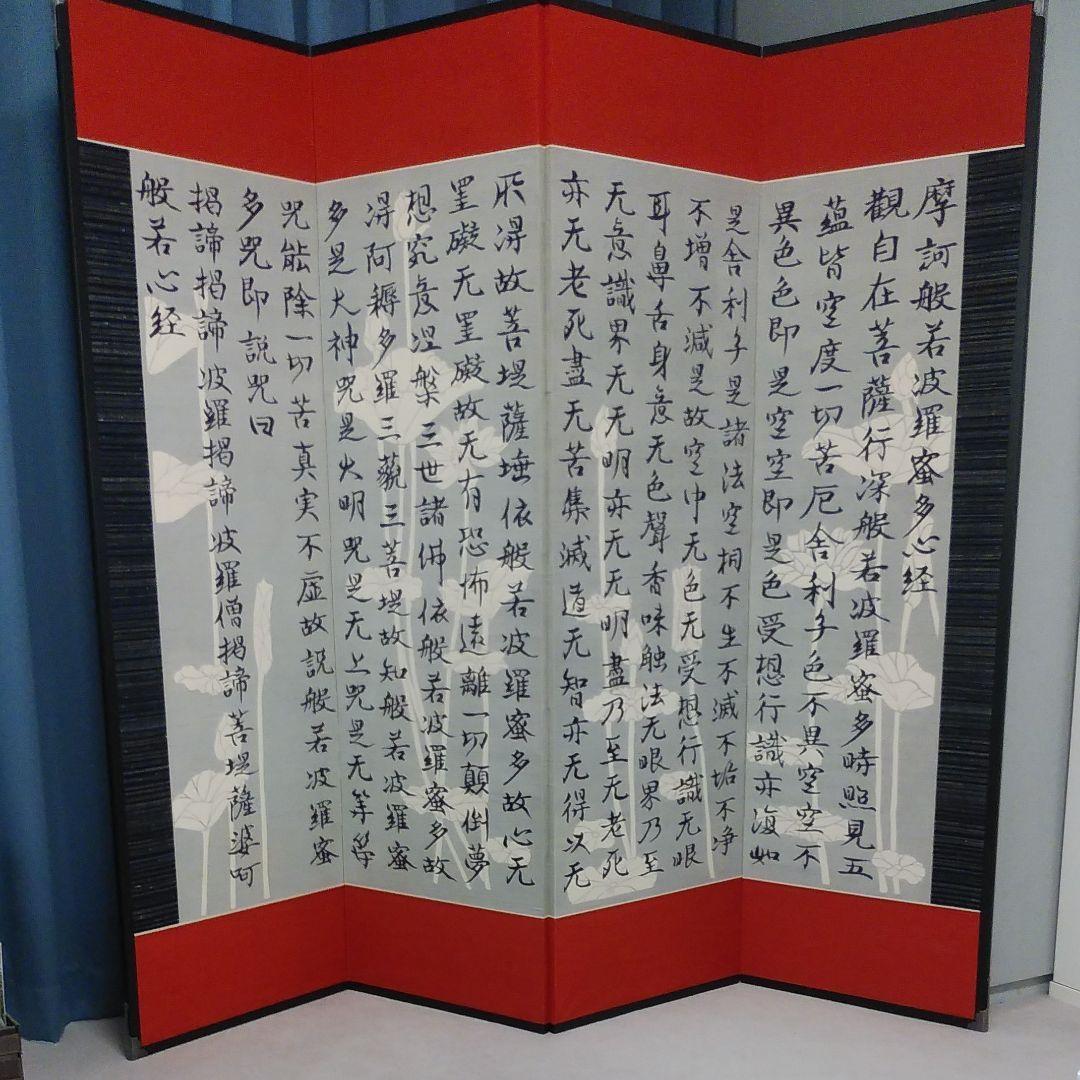 摩訶般若波羅蜜多心経
觀自在菩薩行深般若波羅蜜多時照見五
蘊皆空度一切苦厄舎利子色不異空空不
異色色即是空空即是色受想行識亦復如
是舎利子是諸法空相不生不滅不垢不净
不增不減是故空中无色无受想行識无眼
耳鼻舌身意无色聲香味触法无眼界乃至
无意識界无无明亦无无明盡乃至无老死
亦无老死盡无苦集滅道无智亦无得以无
所得故菩提薩埵依般若波羅蜜多故心无
罣礙无罣礙故无有恐怖遠離一切顛倒夢
想究意涅槃三世諸佛依般若波羅蜜多故
得阿耨多羅三藐三菩提故知般若波羅蜜
多是大神咒是大明咒是无上咒是无等等
咒能除一切苦真実不虚故説般若波羅蜜
多咒即説咒曰
揭諦揭諦波羅揭諦波羅僧揭諦菩提薩婆呵
般若心経